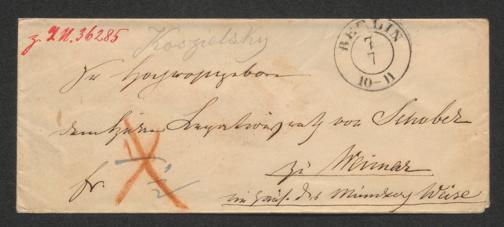 z. I.N. 36285
Koszielsky
BERLIN
7
7
10-11
Sr Hochwohlgeboren
dem Herrn Legationsrath von Schober
zu Weimar
fr.
im Hause des Weise